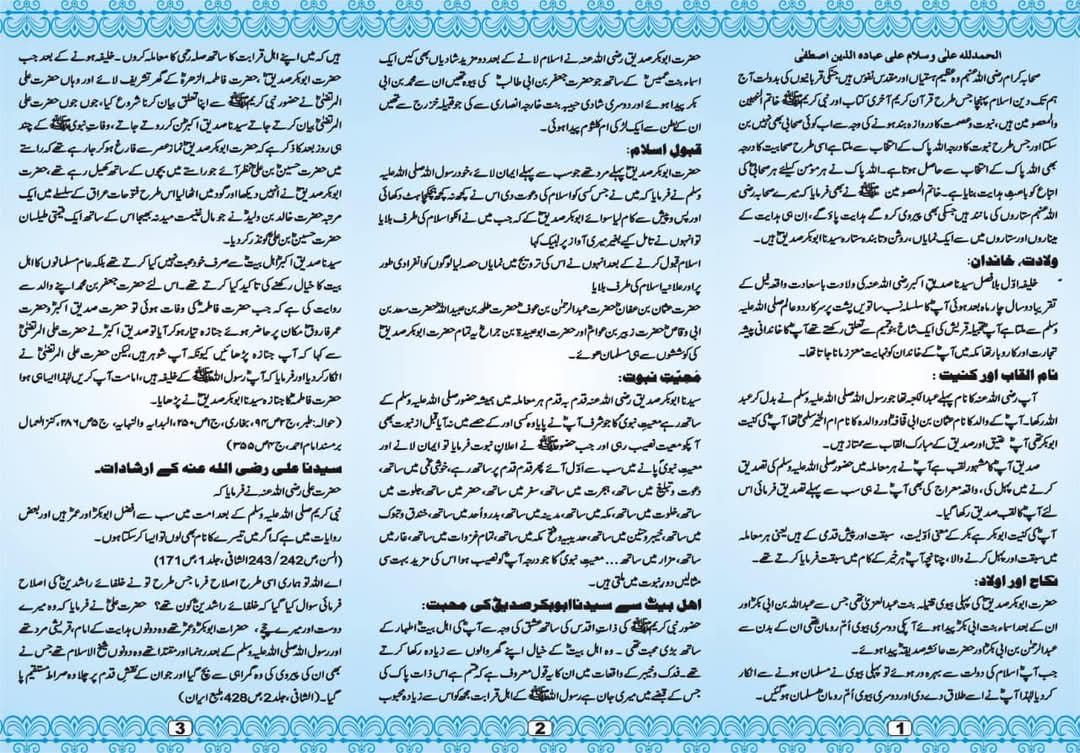 الحمدلله علی وسلام علی عباده الذین اصطفی
صحابہ کرام رضی اللہ عنہم وہ عظیم ہستیاں اور مقدس نفوس ہیں جنکی قربانیوں کی بدولت آج
ہم تک دین اسلام پہنچا جس طرح قرآن کریم آخری کتاب اور نبی کریم ﷺ خاتم النبیین
والمعصومین ہیں، نبوت و عصمت کا دروازہ بند ہونے کی وجہ سے اب کوئی صحابی بھی نہیں بن
سکتا اور جس طرح نبوت کا درجہ اللہ پاک کے انتخاب سے ملتا ہے اسی طرح صحابیت کا درجہ
بھی اللہ پاک کے انتخاب سے حاصل ہوتا ہے۔ اللہ پاک نے ہر مؤمن کیلئے ہر صحابیؓ کی
اتباع کو باعثِ ہدایت بنایا ہے۔ خاتم المعصومین ﷺ نے بھی فرمایا کہ میرے صحابہ رضی
اللہ عنہم ستاروں کی مانند ہیں جسکی بھی پیروی کرو گے ہدایت پاؤ گے، اِن ہی ہدایت کے
میناروں اور ستاروں میں سے ایک نمایاں، روشن و تابندہ ستارہ سیدنا ابوبکر صدیقؓ ہیں۔
ولادت، خاندان:
خلیفہ اوّل بلا فصل سیدنا صدیق اکبر رضی اللہ عنہ کی ولادت باسعادت واقعہ فیل کے
تقریباً دو سال چار ماہ بعد ہوئی آپؓ کا سلسلہ نسب ساتویں پشت پر سرکار دو عالم صلی اللہ علیہ
وسلم سے ملتا ہے آپؓ قبیلہ قریش کی ایک شاخ بنو تیم سے تعلق رکھتے تھے آپؓ کا خاندانی پیشہ
تجارت اور کاروبار تھا مکہ میں آپؓ کے خاندان کو نہایت معزز مانا جاتا تھا۔
نام القاب اور کنیت :
آپ رضی اللہ عنہ کا نام پہلے عبدالکعبہ تھا جو رسول اللہ صلی اللہ علیہ وسلم نے بدل کر عبد
اللہ رکھا۔ آپؓ کے والد کا نام عثمان بن ابی قحافہؓ اور والدہ کا نام ام الخیر سلمیٰؓ تھا آپؓ کی کنیت
ابوبکر تھی آپؓ عتیق اور صدیق کے مبارک القاب سے ممتاز ہیں۔
صدیق آپؓ کا مشہور لقب ہے آپؓ نے ہر معاملہ میں حضور صلی اللہ علیہ وسلم کی تصدیق
کرنے میں پہل کی، واقعہ معراج کی بھی آپؓ نے ہی سب سے پہلے تصدیق فرمائی اس
لئے آپؓ کا لقب صدیق رکھا گیا۔
آپؓ کی کنیت ابوبکر ہے بکر کے معنی اوّلیت ، سبقت اور پیش قدمی کے ہیں یعنی ہر معاملہ
میں سبقت اور پہل کرنے والا، چنانچہ آپؓ ہر خیر کے کام میں سبقت فرمایا کرتے تھے۔
نکاح اور اولاد:
حضرت ابوبکر صدیقؓ کی پہلی بیوی قتیلہ بنت عبدالعزیٰ تھی جس سے عبداللہ بن ابی بکرؓ اور
ان کے بعد اسماء بنت ابی بکرؓ پیدا ہوئے آپکی دوسری بیوی اُم رومانؓ تھی ان کے بدن سے
عبدالرحمٰن بن ابی بکرؓ اور حضرت عائشہ صدیقہؓ پیدا ہوئے۔
جب آپؓ اسلام کی دولت سے بہرہ ور ہوئے تو پہلی بیوی نے مسلمان ہونے سے انکار
کر دیا لہٰذا آپؓ نے اسے طلاق دے دی اور دوسری بیوی اُم رومانؓ مسلمان ہوگئیں۔
1
حضرت ابوبکر صدیق رضی اللہ عنہ نے اسلام لانے کے بعد دو مزید شادیاں بھی کیں ایک
اسماء بنت عمیسؓ کے ساتھ جو حضرت جعفر بن ابی طالبؓ کی بیوہ تھیں ان سے محمد بن ابی
بکر پیدا ہوئے اور دوسری شادی حبیبہ بنت خارجہ انصاری سے کی جو قبیلہ خزرج سے تھیں
ان کے بطن سے ایک لڑکی ام کلثوم پیدا ہوئی۔
قبولِ اسلام:
حضرت ابوبکر صدیقؓ پہلے مرد تھے جو سب سے پہلے ایمان لائے، خود رسول اللہ صلی اللہ علیہ
وسلم نے فرمایا کہ میں نے جس کسی کو اسلام کی دعوت دی اس نے کچھ نہ کچھ ہچکچاہٹ دکھائی
اور پس و پیش سے کام لیا سوائے ابوبکر صدیقؓ کے کہ جب میں نے انکو اسلام کی طرف بلایا
تو انہوں نے تامل کیے بغیر میری آواز پر لبیک کہا
اسلام قبول کرنے کے بعد انہوں نے اس کی ترویج میں نمایاں حصہ لیا لوگوں کو انفرادی طور
پر اور علانیہ اسلام کی طرف بلایا
حضرت عثمان بن عفانؓ حضرت عبدالرحمٰن بن عوفؓ حضرت طلحہ بن عبیداللہؓ حضرت سعد بن
ابی وقاصؓ حضرت زبیر بن عوامؓ اور حضرت ابوعبیدہؓ بن جراحؓ یہ تمام حضرت ابوبکر صدیقؓ
کی کوششوں سے ہی مسلمان ہوئے۔
مَعِیّتِ نبوت:
سیدنا ابوبکر صدیق رضی اللہ عنہ قدم بہ قدم ہر معاملہ میں ہمیشہ حضور صلی اللہ علیہ وسلم کے
ساتھ رہے معیتِ نبویؐ کا جو شرف آپؓ نے پایا وہ کسی اور کے حصے میں نہ آیا قبل از نبوت بھی
آپکو معیت نصیب رہی اور جب حضور ﷺ نے اعلانِ نبوت فرمایا تو ایمان لانے اور
معیتِ نبویؐ پانے میں سب سے اوّل آئے پھر قدم قدم پر ساتھ رہے، خوشی غمی میں ساتھ،
دعوت و تبلیغ میں ساتھ، ہجرت میں ساتھ، سفر میں ساتھ، حضر میں ساتھ، جلوت میں
ساتھ، خلوت میں ساتھ، مکہ میں ساتھ، مدینہ میں ساتھ، بدر و اُحد میں ساتھ، خندق و تبوک
میں ساتھ، خیبر و حنین میں ساتھ، حدیبیہ و فتح مکہ میں ساتھ، تمام غزوات میں ساتھ، غار میں
ساتھ، مزار میں ساتھ ... معیتِ نبویؐ کا جو درجہ آپؓ کو نصیب ہوا اس کی مزید بہت سی
مثالیں دورِ نبوت میں ملتی ہیں۔
اھل بیتؓ سے سیدنا ابوبکر صدیقؓ کی محبت:
حضور نبی کریم ﷺ کی ذاتِ اقدس کی ساتھ عشق کی وجہ سے آپؓ کی اہل بیتؓ اطہار کے
ساتھ بڑی محبت تھی ۔ وہ اہل بیتؓ کے خیال اپنے گھر والوں سے زیادہ رکھا کرتے
تھے۔ فدک و خیبر کے واقعات میں ان کا یہ قول معروف ہے کہ قسم ہے اس ذات پاک کی
جس کے قبضے میں میری جان ہے رسول اللہ ﷺ کے اہل قرابت مجھ کو اس سے زیادہ محبوب
2
ہیں کہ میں اپنے اہل قرابت کا ساتھ صلہ رحمی کا معاملہ کروں ۔ خلیفہ ہونے کے بعد جب
حضرت ابوبکر صدیقؓ حضرت فاطمہ الزھرہؓ کے گھر تشریف لائے اور وہاں حضرت علی
المرتضیٰؓ نے حضور نبی کریم ﷺ سے اپنا تعلق بیان کرنا شروع کیا، جوں جوں حضرت علی
المرتضیٰؓ بیان کرتے جاتے سیدنا صدیق اکبرؓ سن کر روتے جاتے، وفاتِ نبوی ﷺ کے چند
ہی روز بعد کا ذکر ہے کہ حضرت ابوبکر صدیقؓ نماز عصر سے فارغ ہو کر جا رہے تھے کہ راستے
میں حضرت حسینؓ بن علیؓ نظر آئے جو راستے میں بچوں کے ساتھ کھیل رہے تھے، حضرت
ابوبکر صدیقؓ نے انہیں دیکھا اور گود میں اٹھا لیا اس طرح فتوحاتِ عراق کے سلسلے میں ایک
مرتبہ حضرت خالد بن ولیدؓ نے جو مال غنیمت مدینہ بھیجا اس کے ساتھ ایک قیمتی طیلسان
حضرت حسینؓ بن علیؓ کو نذر کر دیا۔
سیدنا صدیق اکبرؓ اہل بیتؓ سے صرف خود محبت نہیں کیا کرتے تھے بلکہ عام مسلمانوں کا اہل
بیت کا خیال رکھنے کی تاکید کیا کرتے تھے۔ اس لئے حضرت جعفر بن محمد اپنے والد سے
روایت کی ہے کہ جب حضرت فاطمہؓ کی وفات ہوئی تو حضرت صدیق اکبرؓ و حضرت
عمر فاروقؓ مکان پر حاضر ہوئے جنازہ تیار ہو کر آیا تو صدیق اکبرؓ نے حضرت علی المرتضیٰؓ
سے کہا کہ آپ جنازہ پڑھائیں کیونکہ آپ شوہر ہیں، لیکن حضرت علی المرتضیٰؓ نے
انکار کر دیا اور فرمایا کہ آپؓ رسول اللہ ﷺ کے خلیفہ ہیں، امامت آپ کریں لہٰذا ایسا ہی ہوا
حضرت فاطمہؓ کا جنازہ سیدنا ابوبکر صدیقؓ نے پڑھایا۔
(حوالہ: طبر، ج۲ص۹۴، بخاری، ج۱ص۲۵۰، البدایہ والنہایہ، ج۵ص۲۸۶، کنز العمال
بر مسند امام احمد، ج۴ص۳۵۵)
سیدنا علی رضی اللہ عنہ کے ارشادات۔
حضرت علی رضی اللہ عنہ نے فرمایا کہ
نبی کریم صلی اللہ علیہ وسلم کے بعد امت میں سب سے افضل ابوبکرؓ اور عمرؓ ہیں اور بعض
روایات میں ہے کہ اگر میں تیسرے کا نام بھی لوں تو ایسا کر سکتا ہوں۔
(السن، ص242/243 الشافی، جلد 1 ص171)
اے اللہ تو ہماری اسی طرح اصلاح فرما جس طرح تو نے خلفائے راشدینؓ کی اصلاح
فرمائی سوال کیا گیا کہ خلفائے راشدینؓ کون تھے؟ حضرت علیؓ نے فرمایا کہ وہ میرے
دوست اور میرے چچے، حضرات ابوبکرؓ و عمرؓ تھے وہ دونوں ہدایت کے امام، قریشی مرد تھے
اور رسول اللہ صلی اللہ علیہ وسلم کے بعد رہنما اور مقتدا تھے وہ دونوں شیخ الاسلام تھے جس نے
بھی ان کی پیروی کی وہ گمراہی سے بچ گیا اور جو ان کے نقشِ قدم پر چلا وہ صراط مستقیم پا
گیا۔ (الشافی، جلد2، ص428 طبع ایران)
3